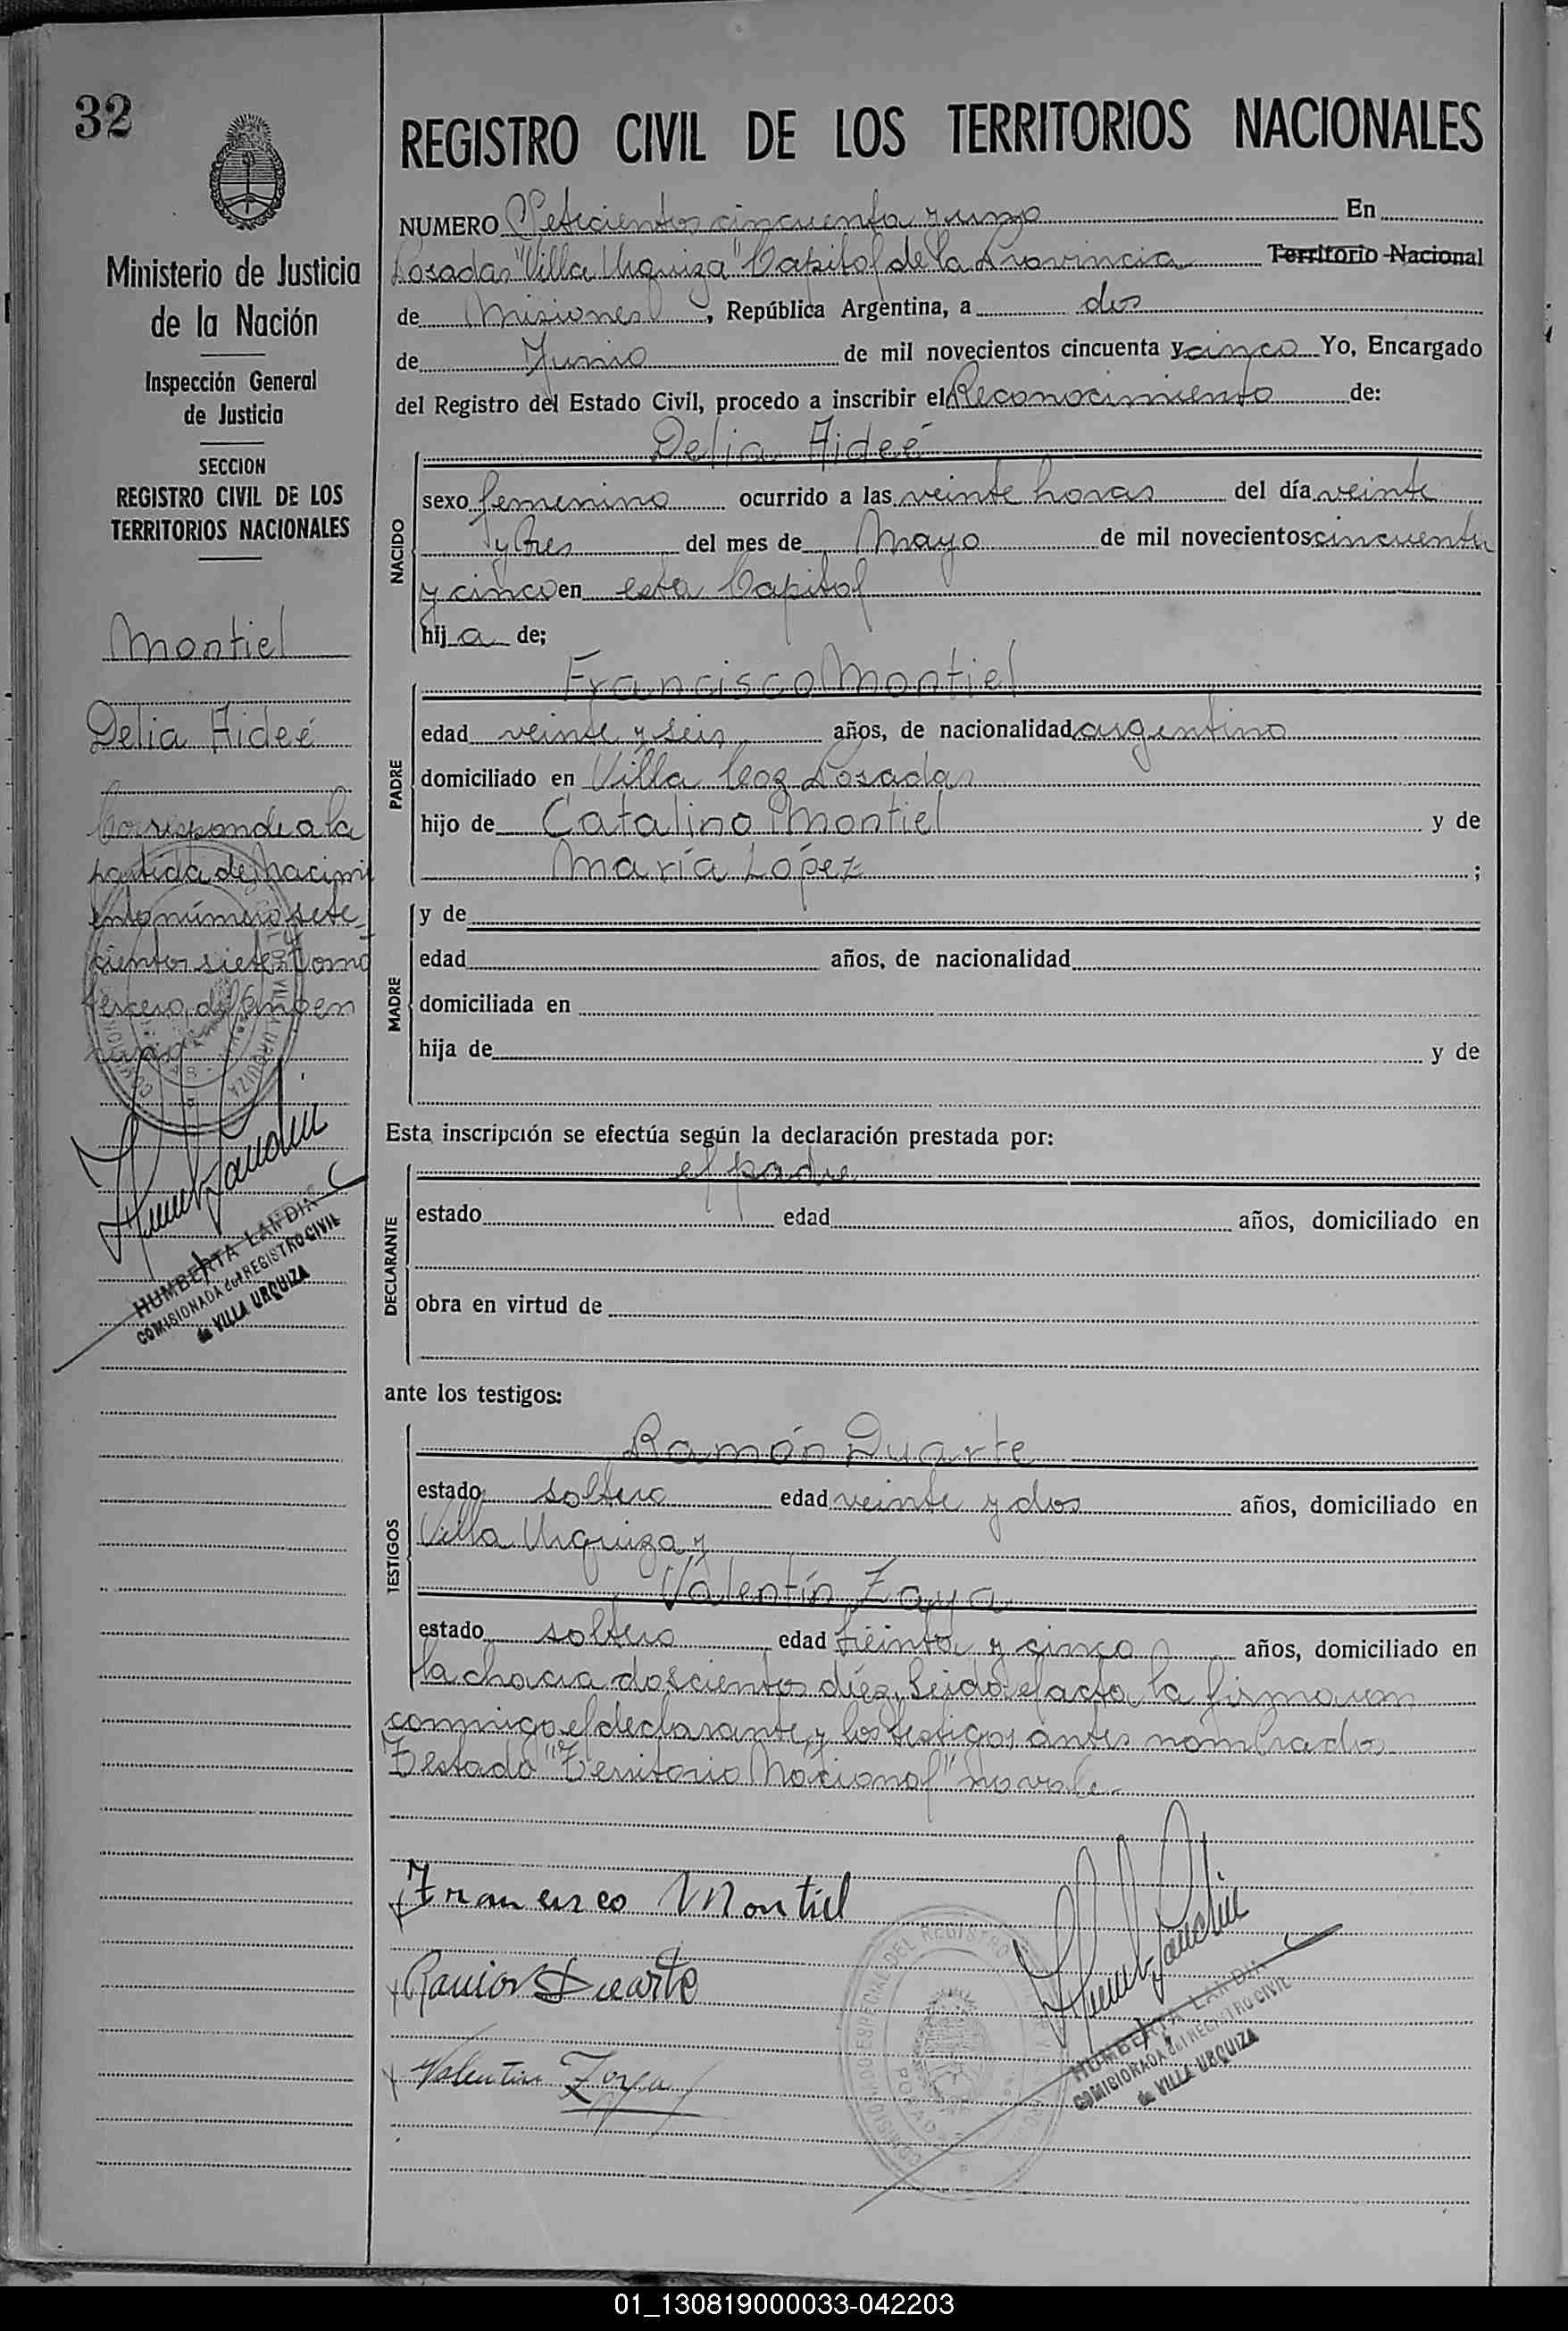 32
Ministerio de Justicia
de la Nación
Inspección General
de Justicia
SECCION
REGISTRO CIVIL DE LOS
TERRITORIOS NACIONALES
Montiel
Delia Aideé
Corresponde a la
partida de nacimi
ento número sete-
cientos siete tomo
tercero del año en
HUMBERTA LANDIN
COMISIONADA del REGISTRO CIVIL
de VILLA URQUIZA
REGISTRO CIVIL DE LOS TERRITORIOS NACIONALES
NUMERO Setecientos cincuenta y uno En
Posadas "Villa Urquiza" Capital de la Provincia Territorio Nacional
de Misiones, República Argentina, a dos
de Junio de mil novecientos cincuenta y cinco Yo, Encargado
del Registro del Estado Civil, procedo a inscribir el Reconocimiento de:
Delia Aideé
NACIDO
sexo femenino ocurrido a las veinte horas del día veinte
y tres del mes de Mayo de mil novecientos cincuenta
y cinco en esta Capital
hija de;
Francisco Montiel
PADRE
edad veinte y seis años, de nacionalidad argentino
domiciliado en Villa Coz Posadas
hijo de Catalino Montiel y de
María López ;
MADRE
y de
edad años, de nacionalidad
domiciliada en
hija de y de
Esta inscripción se efectúa según la declaración prestada por:
el padre
DECLARANTE
estado edad años, domiciliado en
obra en virtud de
ante los testigos:
Ramón Duarte
TESTIGOS
estado soltero edad veinte y dos años, domiciliado en
Villa Urquiza y
Valentín Zaya
estado soltero edad treinta y cinco años, domiciliado en
la chacra doscientos diez. Leido el acta la firmaron
conmigo el declarante y los testigos antes nombrados
Testado "Territorio Nacional" no vale.
Francisco Montiel
Ramon Duarte
Valentin Zoya
COMISIONADO ESPECIAL DEL REGISTRO
POSADAS
HUMBERTA LANDIN
COMISIONADA del REGISTRO CIVIL
de VILLA URQUIZA
01_130819000033-042203